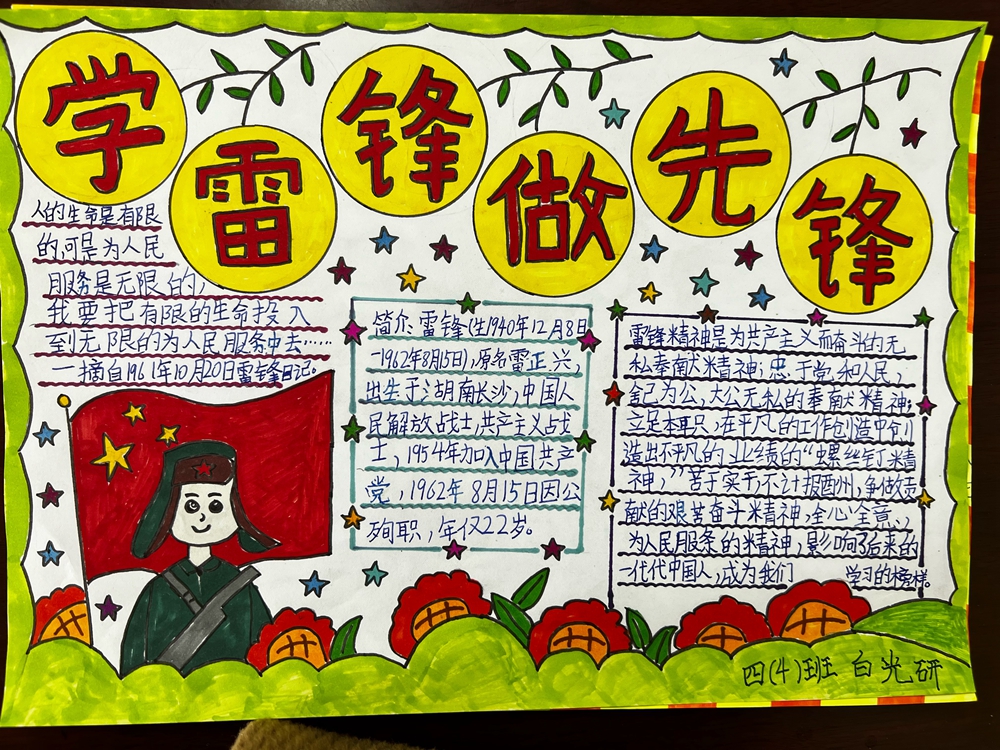 学雷锋做先锋
人的生命是有限
的,可是为人民
服务是无限的,
我要把有限的生命投入
到无限的为人民服务中去……
一摘自1961年10月20日雷锋日记。
简介:雷锋(生1940年12月8日
-1962年8月15日),原名雷正兴,
出生于湖南长沙,中国人
民解放战士,共产主义战
士,1954年加入中国共产
党,1962年8月15日因公
殉职,年仅22岁。
雷锋精神是为共产主义而奋斗的无
私奉献精神;忠于党和人民,
舍己为公,大公无私的奉献精神;
立足本职,在平凡的工作创造中创
造出不平凡的业绩的“螺丝钉精
神,”苦于实干,不计报酬,争做贡
献的艰苦奋斗精神,全心全意,
为人民服务的精神,影响了后来的
一代代中国人,成为我们 学习的榜样。
四(4)班 白光研